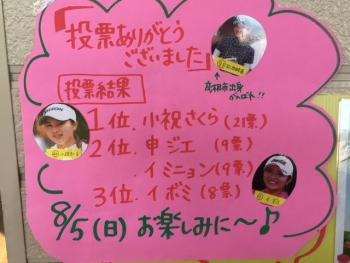 「投票ありがとう
ございました」
投票結果
1位.小祝さくら(21票)
2位.申ジエ(9票)
イミニョン(9票)
3位.イボミ(8票)
8/5(日)お楽しみに～♪